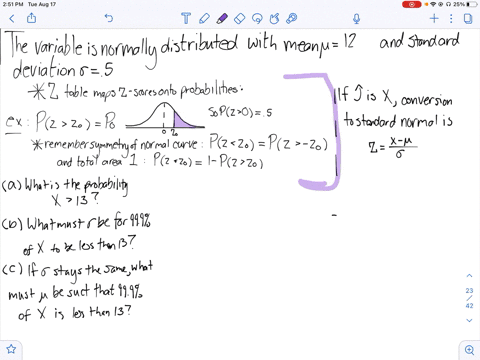 2:51 PM Tue Aug 17
25%
The variable is normally distributed with mean μ = 12 and standard
deviation σ = .5
* Z table maps Z-scores onto probabilities:
ex: P(Z > Z₀) = P₀
0 Z₀
So P(Z>0) = .5
* remember symmetry of normal curve: P(Z < Z₀) = P(Z > -Z₀)
and total area 1: P(Z < Z₀) = 1 - P(Z > Z₀)
If J is X, conversion
to standard normal is
Z = (x-μ)/σ
(a) What is the probability
X > 13?
(b) What must σ be for 99.9%
of X to be less then 13?
(c) If σ stays the same, what
must μ be such that 99.9%
of X is less then 13?
23
/
42